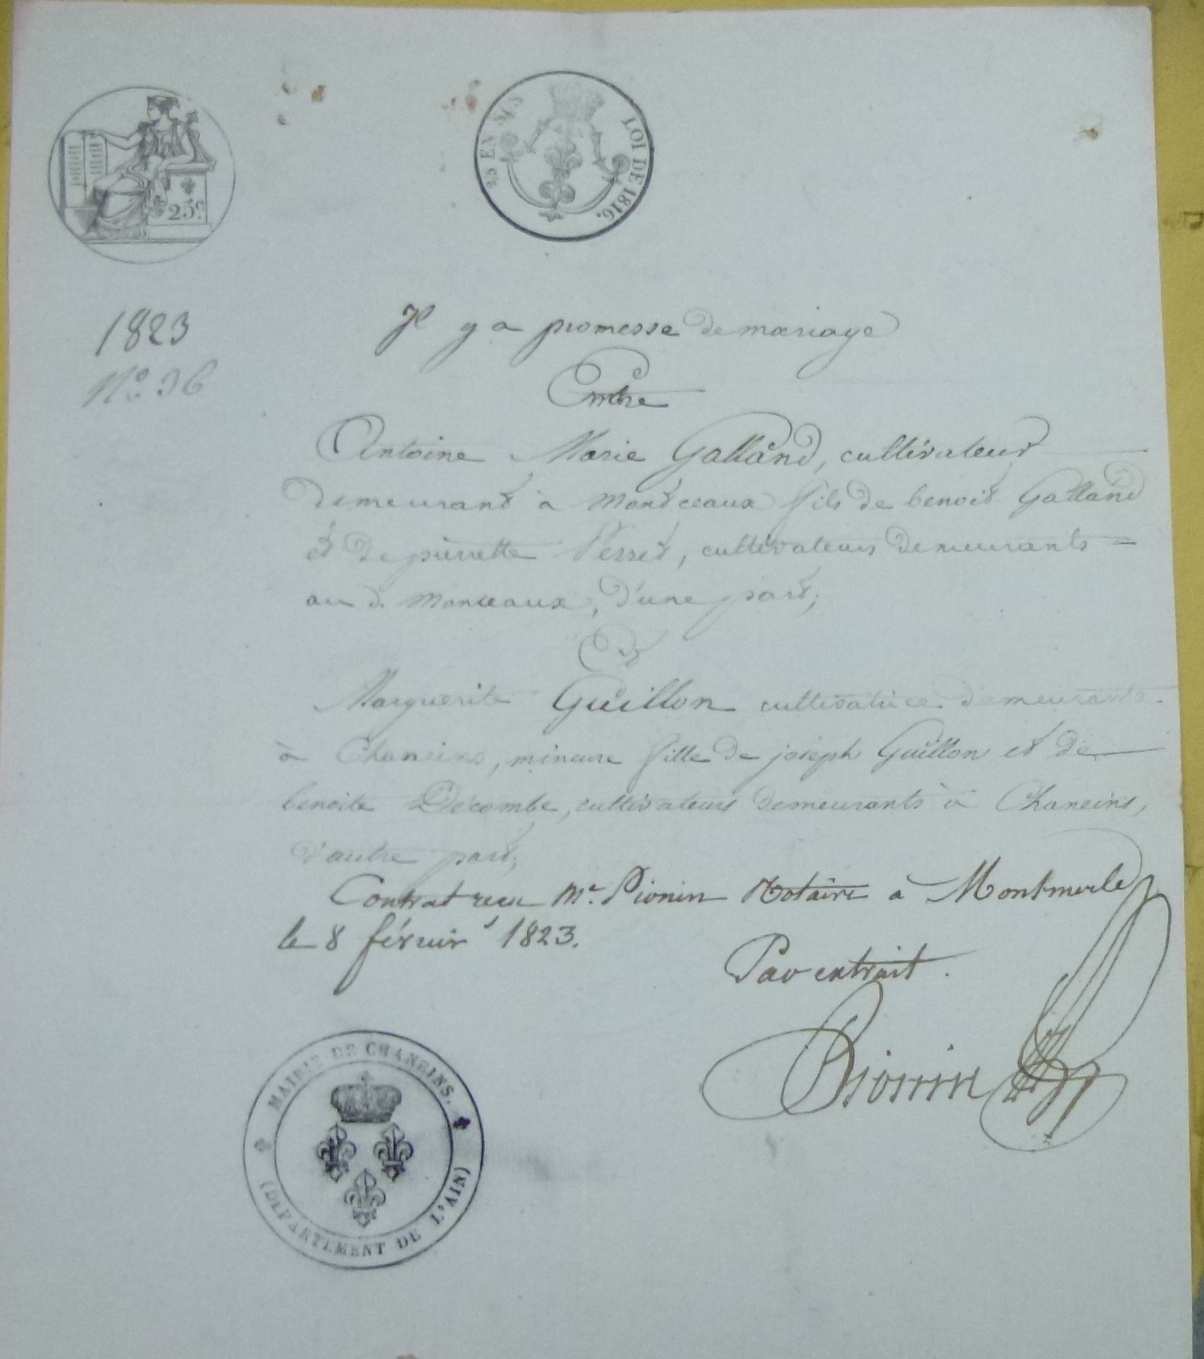 25 c.
25 EN SUS
LOI DE 1816.
1823
N.o 36
Il y a promesse de mariage
Entre
Antoine Marie Galland, cultivateur
demeurant à Montceaux fils de benoit Galland
et de pierrette Perret, cultivateurs demeurants =
au d. Monceaux, d'une part;
Et
Marguerite Guillon cultivatrice demeurante
à Chaneins, mineure fille de joseph Guillon et de
benoite Décombe, cultivateurs demeurants à Chaneins,
d'autre part;
Contrat reçu Me. Pionin Notaire à Montmerle
le 8 février 1823.
Par extrait.
Pionin
MAIRIE DE CHANEINS.
(DEPARTEMENT DE L'AIN)